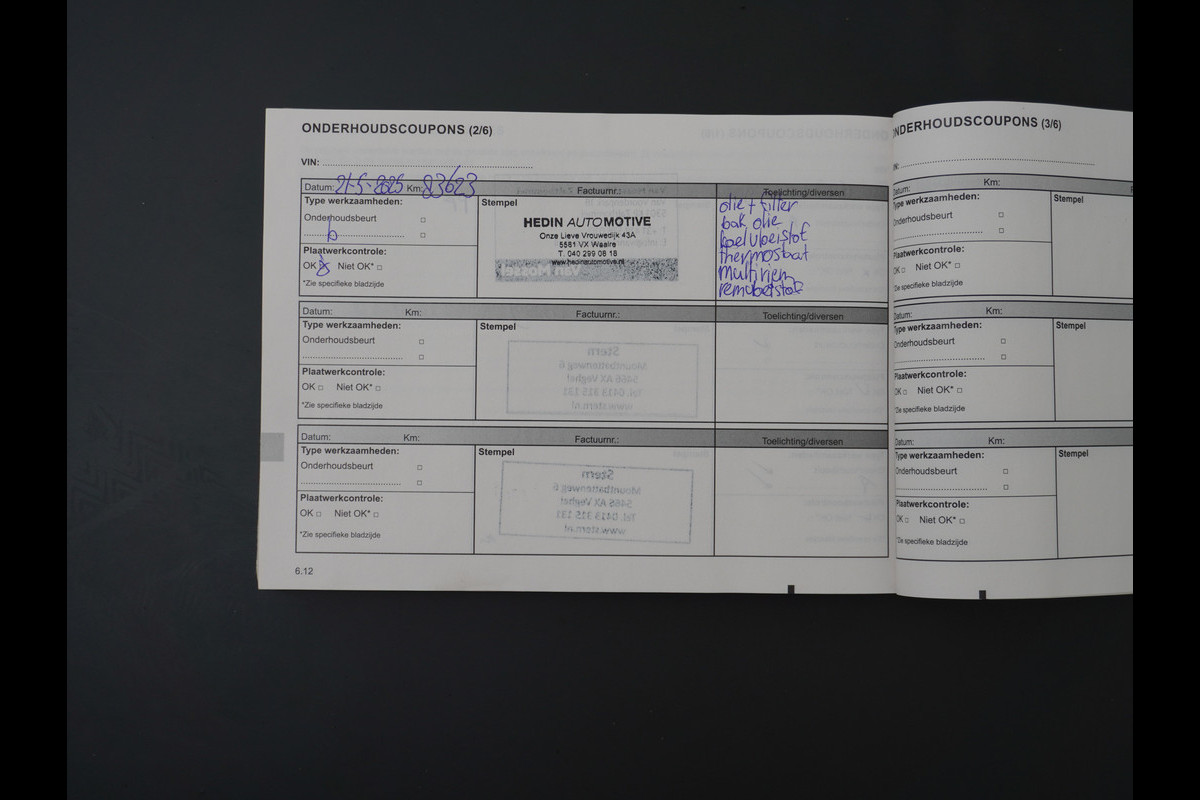 ONDERHOUDSCOUPONS (2/6)
VIN:
Datum: 21-5-2025 Km: 83623 Factuurnr.: Toelichting/diversen
Type werkzaamheden:
Stempel
Onderhoudsbeurt
b
Plaatwerkcontrole:
OK Niet OK*
*Zie specifieke bladzijde
HEDIN AUTOMOTIVE
Onze Lieve Vrouwedijk 43A
5581 VX Waalre
T. 040 299 08 18
www.hedinautomotive.nl
Van Mossel
olie + filter
bak olie
koelvloeistof
thermostaat
multiriem
remvloeistof
Datum: Km: Factuurnr.: Toelichting/diversen
Type werkzaamheden:
Stempel
Onderhoudsbeurt
Plaatwerkcontrole:
OK Niet OK*
*Zie specifieke bladzijde
Stern
Mountbattenweg 6
5466 AX Veghel
Tel. 0413 315 131
www.stern.nl
Datum: Km: Factuurnr.: Toelichting/diversen
Type werkzaamheden:
Stempel
Onderhoudsbeurt
Plaatwerkcontrole:
OK Niet OK*
*Zie specifieke bladzijde
Stern
Mountbattenweg 6
5466 AX Veghel
Tel. 0413 315 131
www.stern.nl
6.12
NDERHOUDSCOUPONS (3/6)
IN:
Datum: Km:
Type werkzaamheden:
Stempel
Onderhoudsbeurt
Plaatwerkcontrole:
OK Niet OK*
*Zie specifieke bladzijde
Datum: Km:
Type werkzaamheden:
Stempel
Onderhoudsbeurt
Plaatwerkcontrole:
OK Niet OK*
*Zie specifieke bladzijde
Datum: Km:
Type werkzaamheden:
Stempel
Onderhoudsbeurt
Plaatwerkcontrole:
OK Niet OK*
*Zie specifieke bladzijde